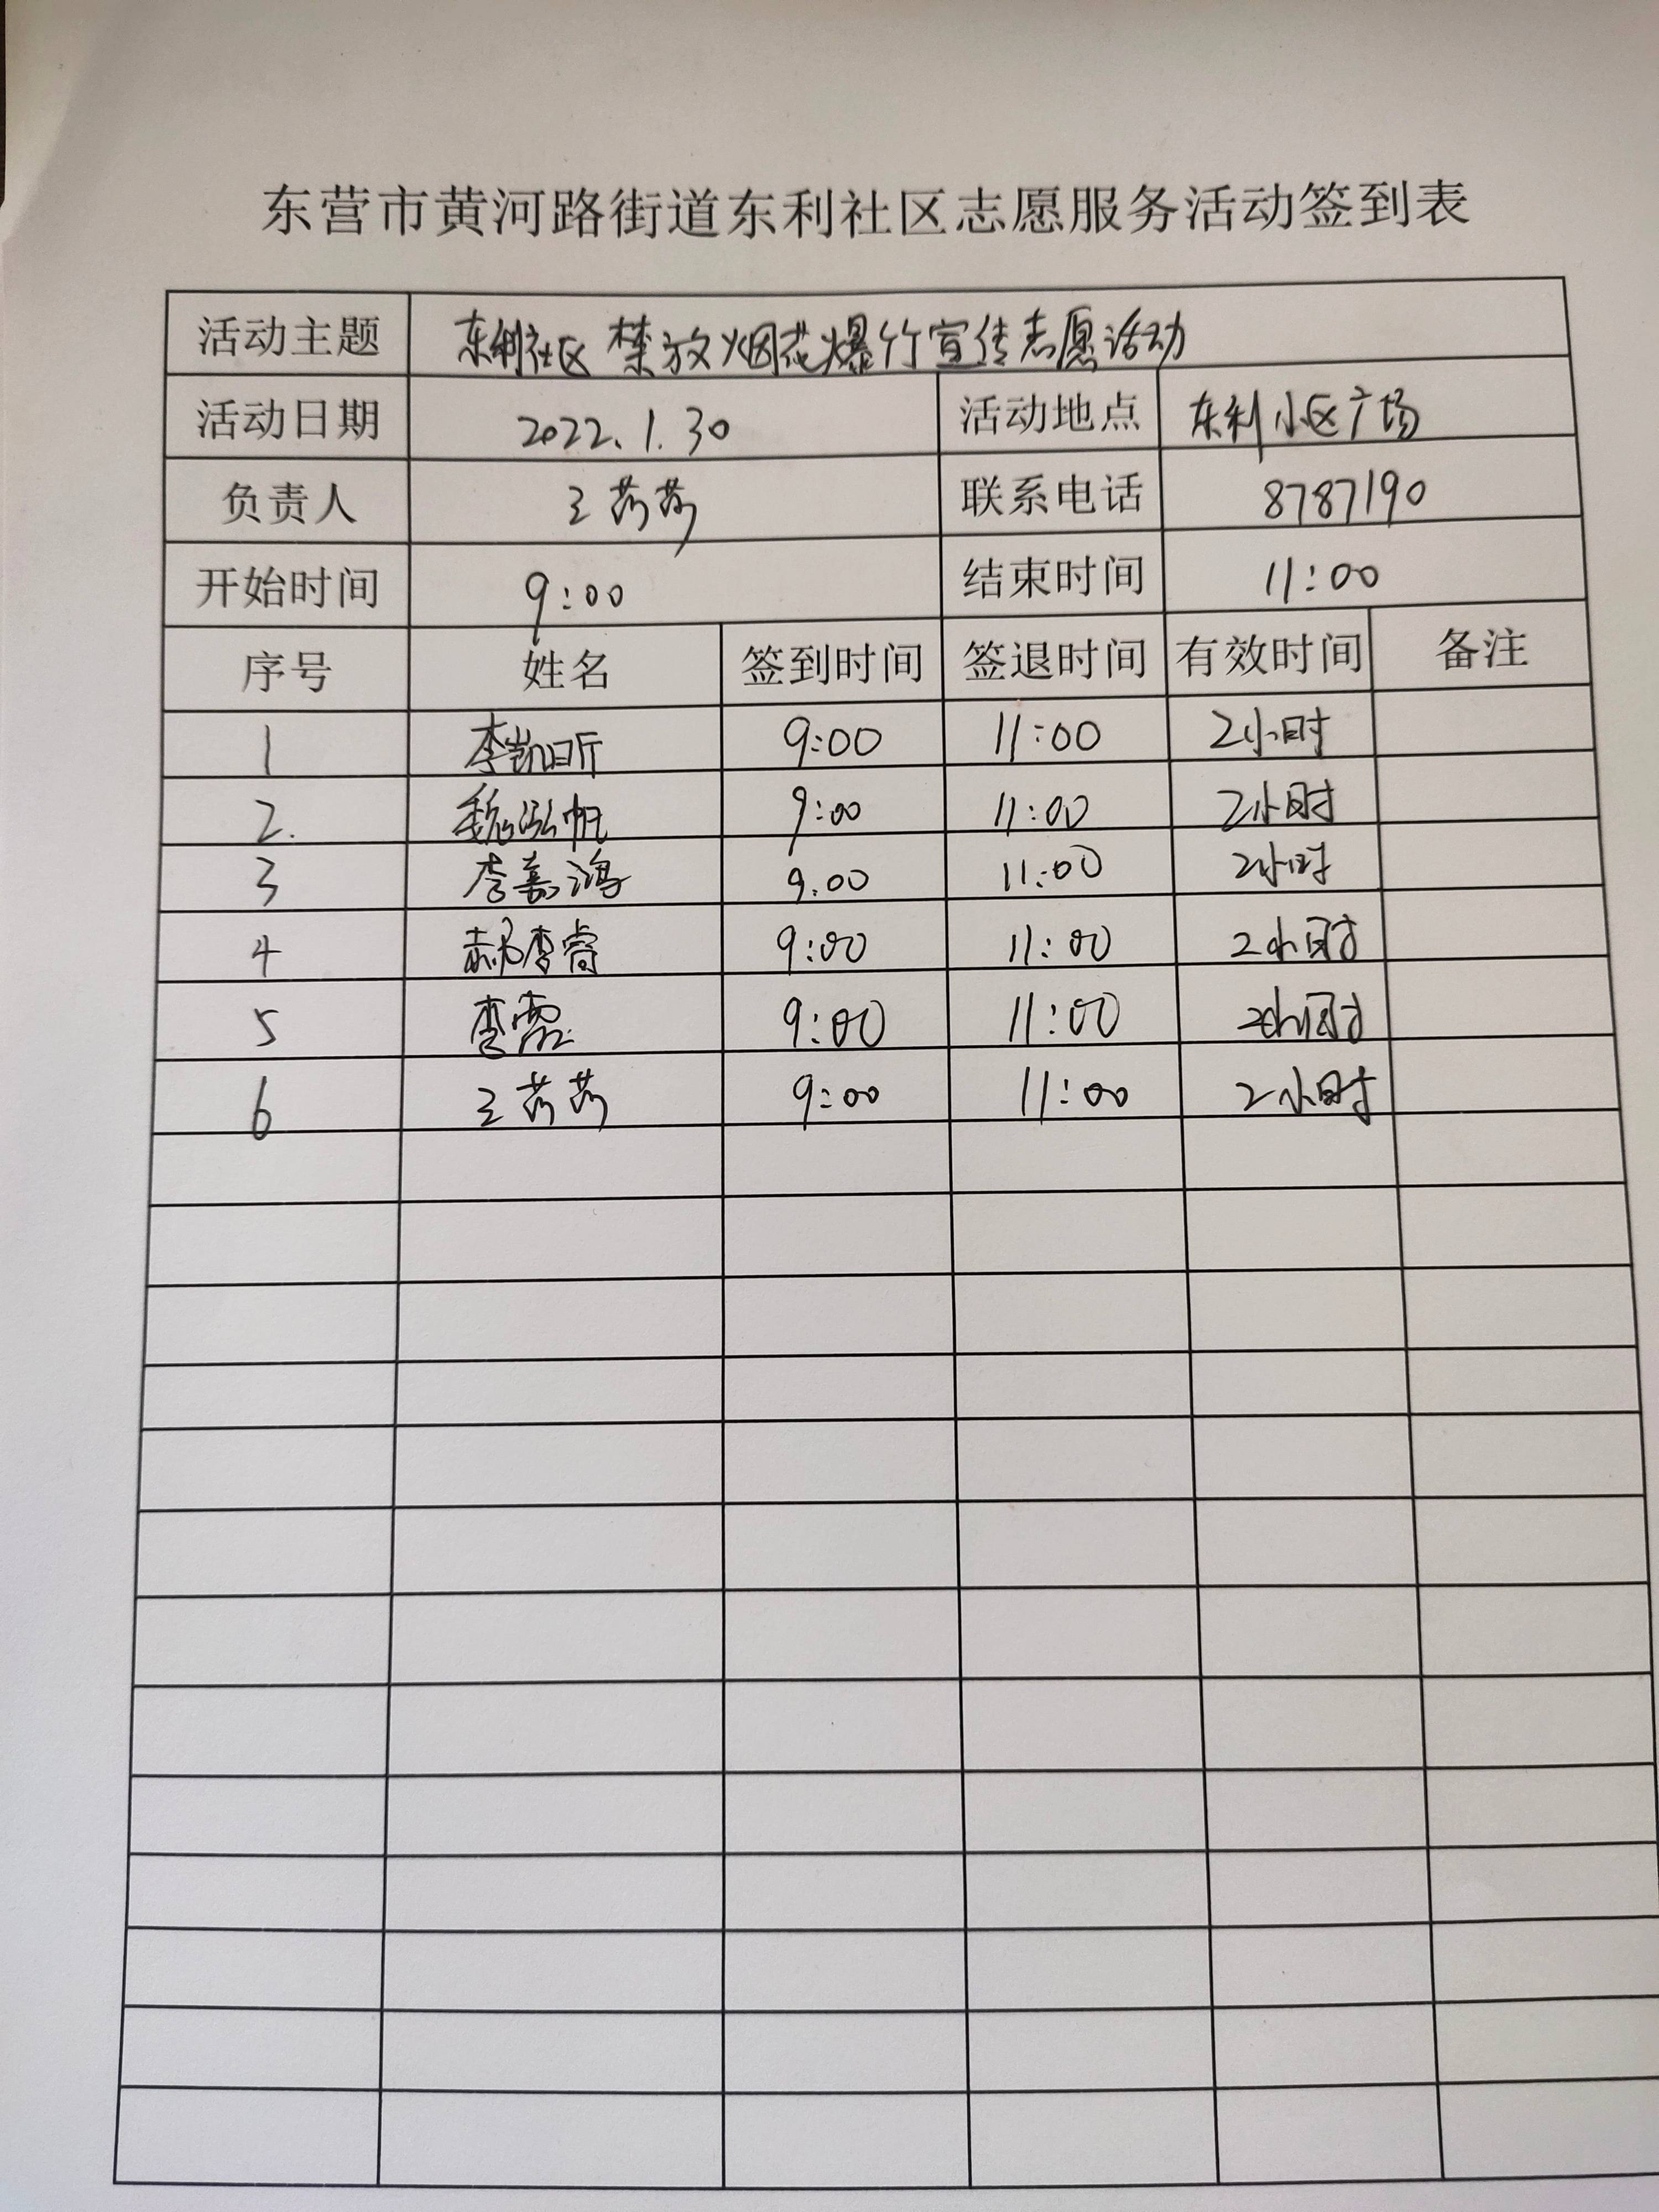 东营市黄河路街道东利社区志愿服务活动签到表
活动主题 东利社区禁放烟花爆竹宣传志愿活动
活动日期 2022.1.30 活动地点 东利小区广场
负责人 王芮芮 联系电话 8787190
开始时间 9:00 结束时间 11:00
序号 姓名 签到时间 签退时间 有效时间 备注
1 李凯昕 9:00 11:00 2小时
2. 魏泓帆 9:00 11:00 2小时
3 李嘉鸿 9.00 11:00 2小时
4 郝李睿 9:00 11:00 2小时
5 李霞 9:00 11:00 2小时
6 王芮芮 9:00 11:00 2小时